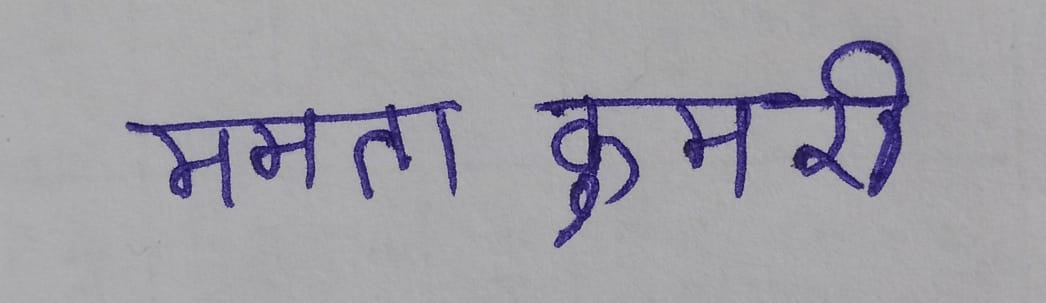 ममता कुमरी